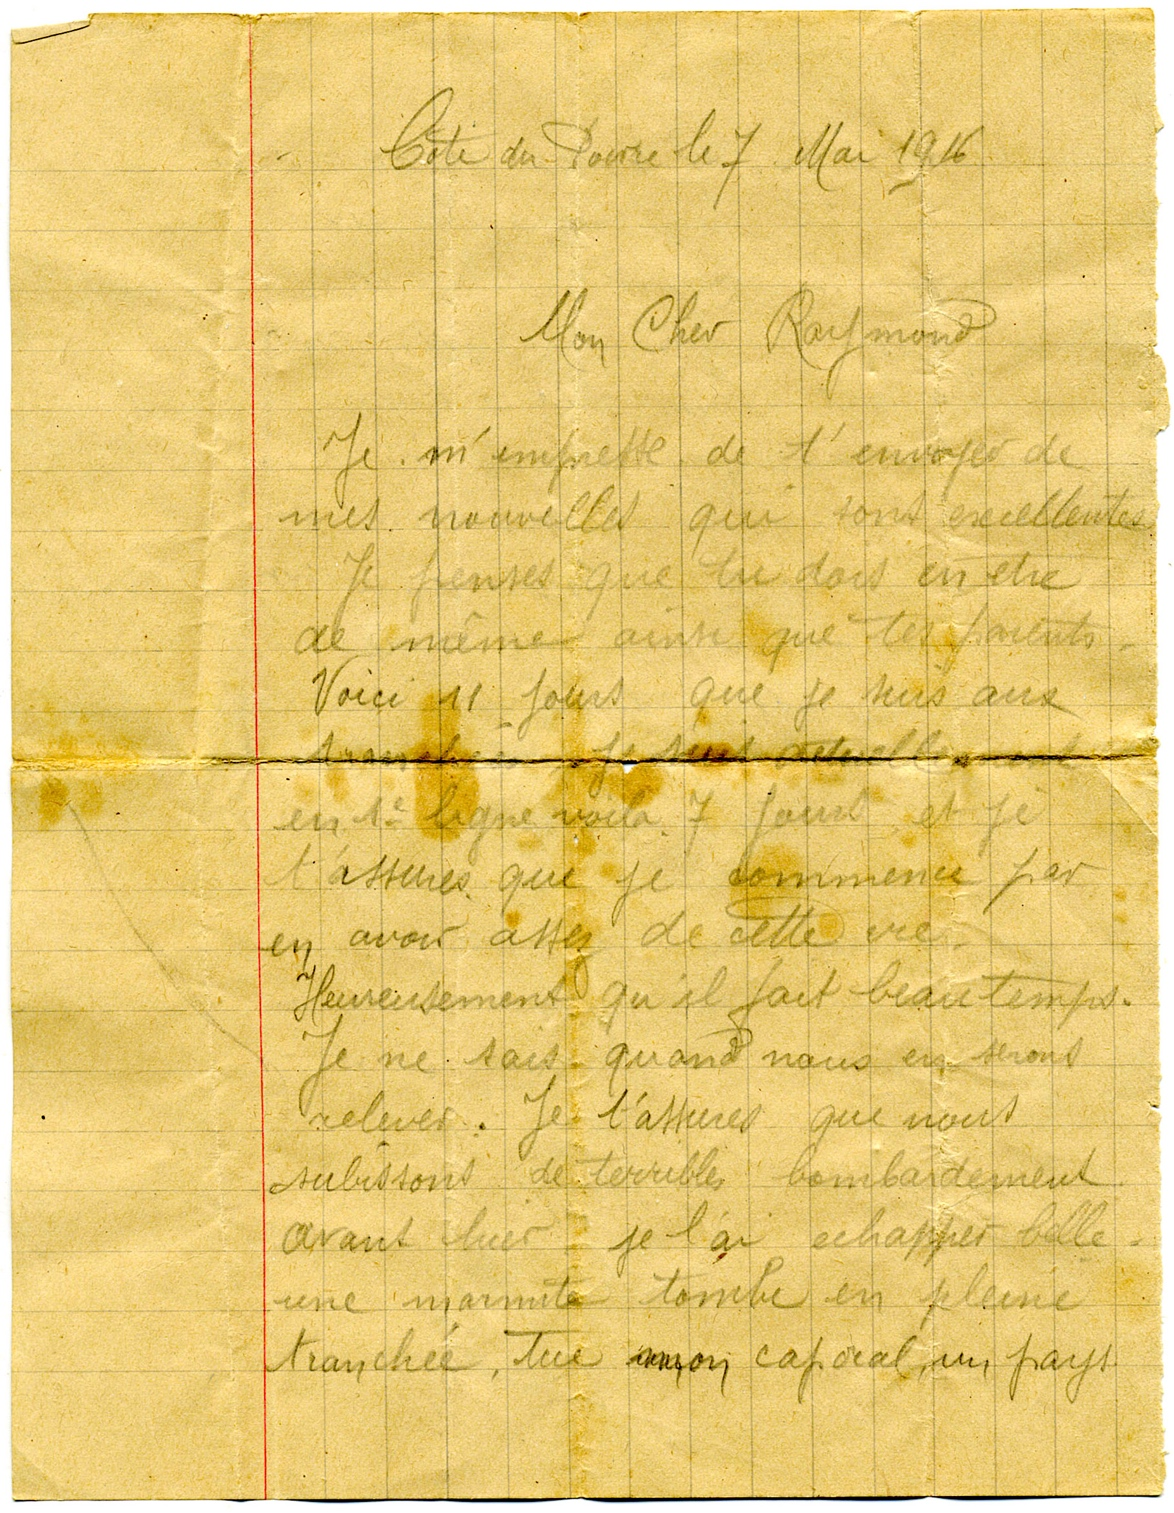 Côte du Poivre le 7 Mai 1916
Mon Cher Raymond
Je m'empresse de t'envoyer de
mes nouvelles qui sont excellentes
Je penses que tu dois en etre
de même ainsi que tes parents.
Voici 11 jours que je suis aux
tranchées je suis actuellement
en 1e ligne voila 7 jours et je
t'assures que je commence par
en avoir assez de cette vie.
Heureusement qu'il fait beau temps.
Je ne sais quand nous en serons
relever. Je t'assures que nous
subissons de terribles bombardement
avant hier je l'ai echapper belle.
une marmite tombe en pleine
tranchée, tue mon caporal, un pays